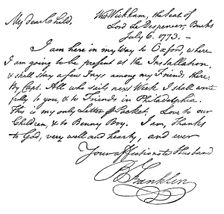 My dear Child,
West Wickham, the seat of
Lord le Despencer, Bucks
July 6. 1773.—
I am here in my way to Oxford, where
I am going to be present at the Installation,
& shall stay a few Days among my Friends there.
By Capt. All who sails next Week I shall write
fully to you & to Friends in Philadelphia.
This is my only Letter Packet. Love to our
Children, & to Benny Boy. I am, thanks
to God, very well and hearty, and ever
Your affectionate Husband
B Franklin